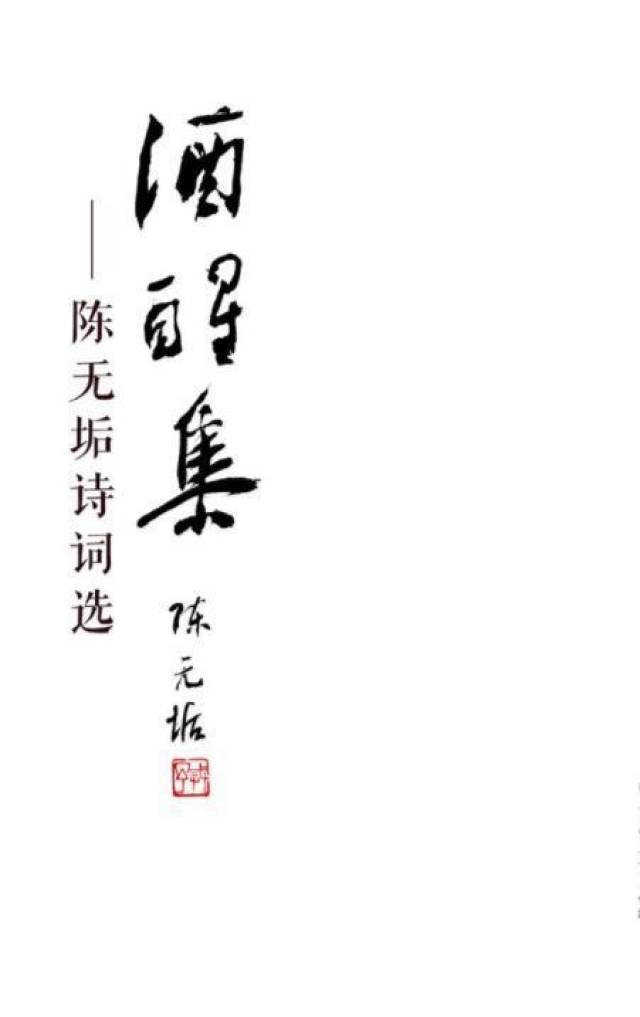 酒醒集
陈无垢
——陈无垢诗词选